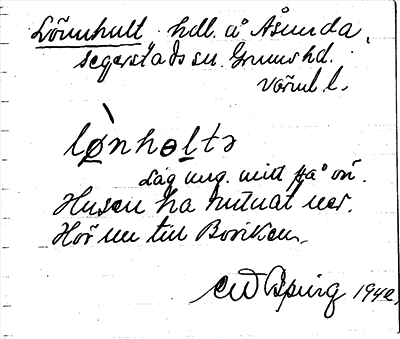 Lönnhult hdl. å Åsunda,
Segerstads sn. Grums hd.
Värml l.
lø̀nhɵltə
Låg ung. mitt på ön.
Husen ha rutnat ner.
Hör nu till Boviken.
1940